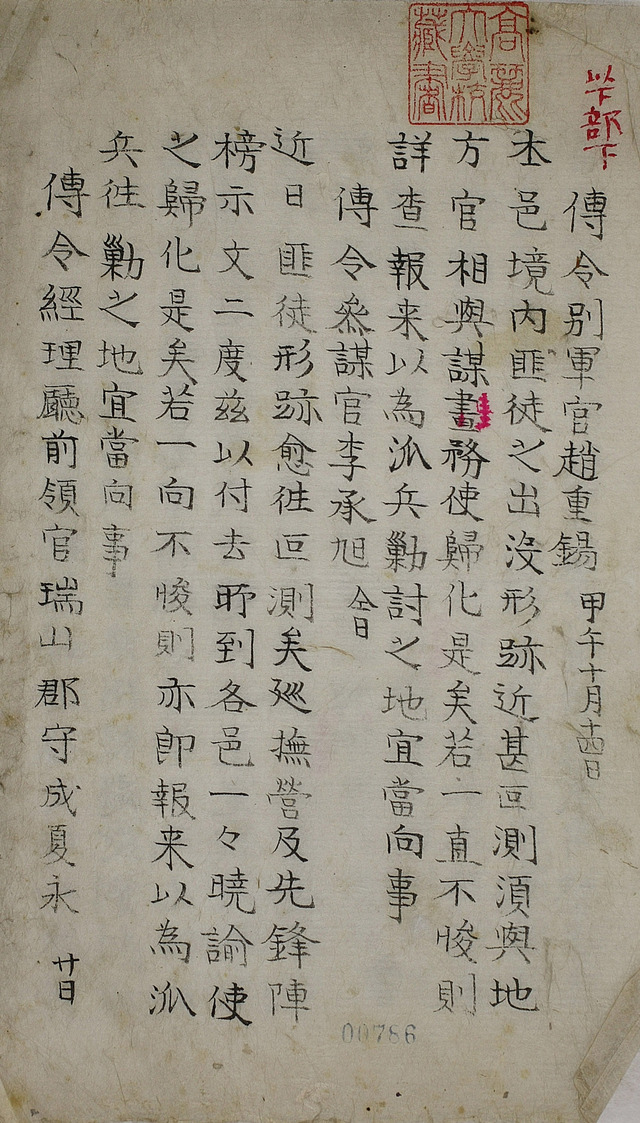 高麗
大學校
藏書
以下部下
傳令別軍官趙重錫 甲午十月十四日
本邑境內匪徒之出沒形跡近甚叵測須與地
方官相與謀畫務使歸化是矣若一直不悛則
詳查報来以為派兵勦討之地宜當向事
傳令叅謀官李承旭 仝日
近日匪徒形跡愈徃叵測矣廵撫營及先鋒陣
榜示文二度玆以付去所到各邑一々曉諭使
之歸化是矣若一向不悛則亦即報来以為派
兵徃勦之地宜當向事
傳令經理廳前領官瑞山郡守成夏永 廿日
00786